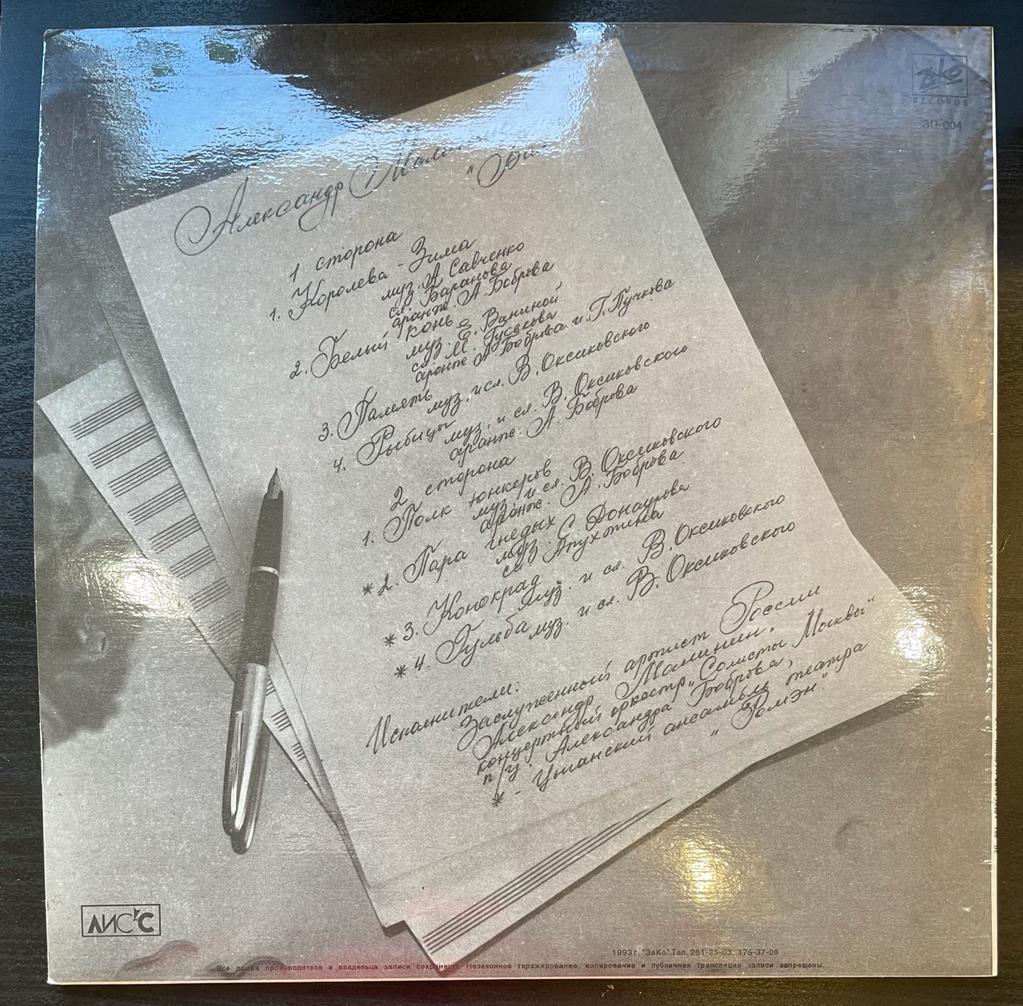 ZeKo
RECORDS
ЗП-004
Александр
1 сторона
1. Королева - Зима
муз. А. Савченко
сл. Баранова
аранж. А. Боброва
2. Белый конь
муз. Е. Ваниной
сл. М. Гуськова
аранж. А. Боброва и Г. Пучкова
3. Память
муз. и сл. В. Оксиковского
4. Рыбицы
муз. и сл. В. Оксиковского
аранж. А. Боброва
2 сторона
1. Полк юнкеров
муз. и сл. В. Оксиковского
аранж. А. Боброва
* 2. Пара гнедых
муз. С. Донаурова
сл. Апухтина
* 3. Конокрад
муз. и сл. В. Оксиковского
* 4. Гульба
муз. и сл. В. Оксиковского
Исполнители:
Заслуженный артист России
Александр Малинин.
концертный оркестр "Солисты Москвы"
п/у Александра Боброва,
* - Цыганский ансамбль театра
"Ромэн"
ЛИС'С
1993 г. "ЗеКо" Тел. 261-25-03, 175-37-08
Все права производителя и владельца записи сохранены. Незаконное тиражирование, копирование и публичная трансляция записи запрещены.